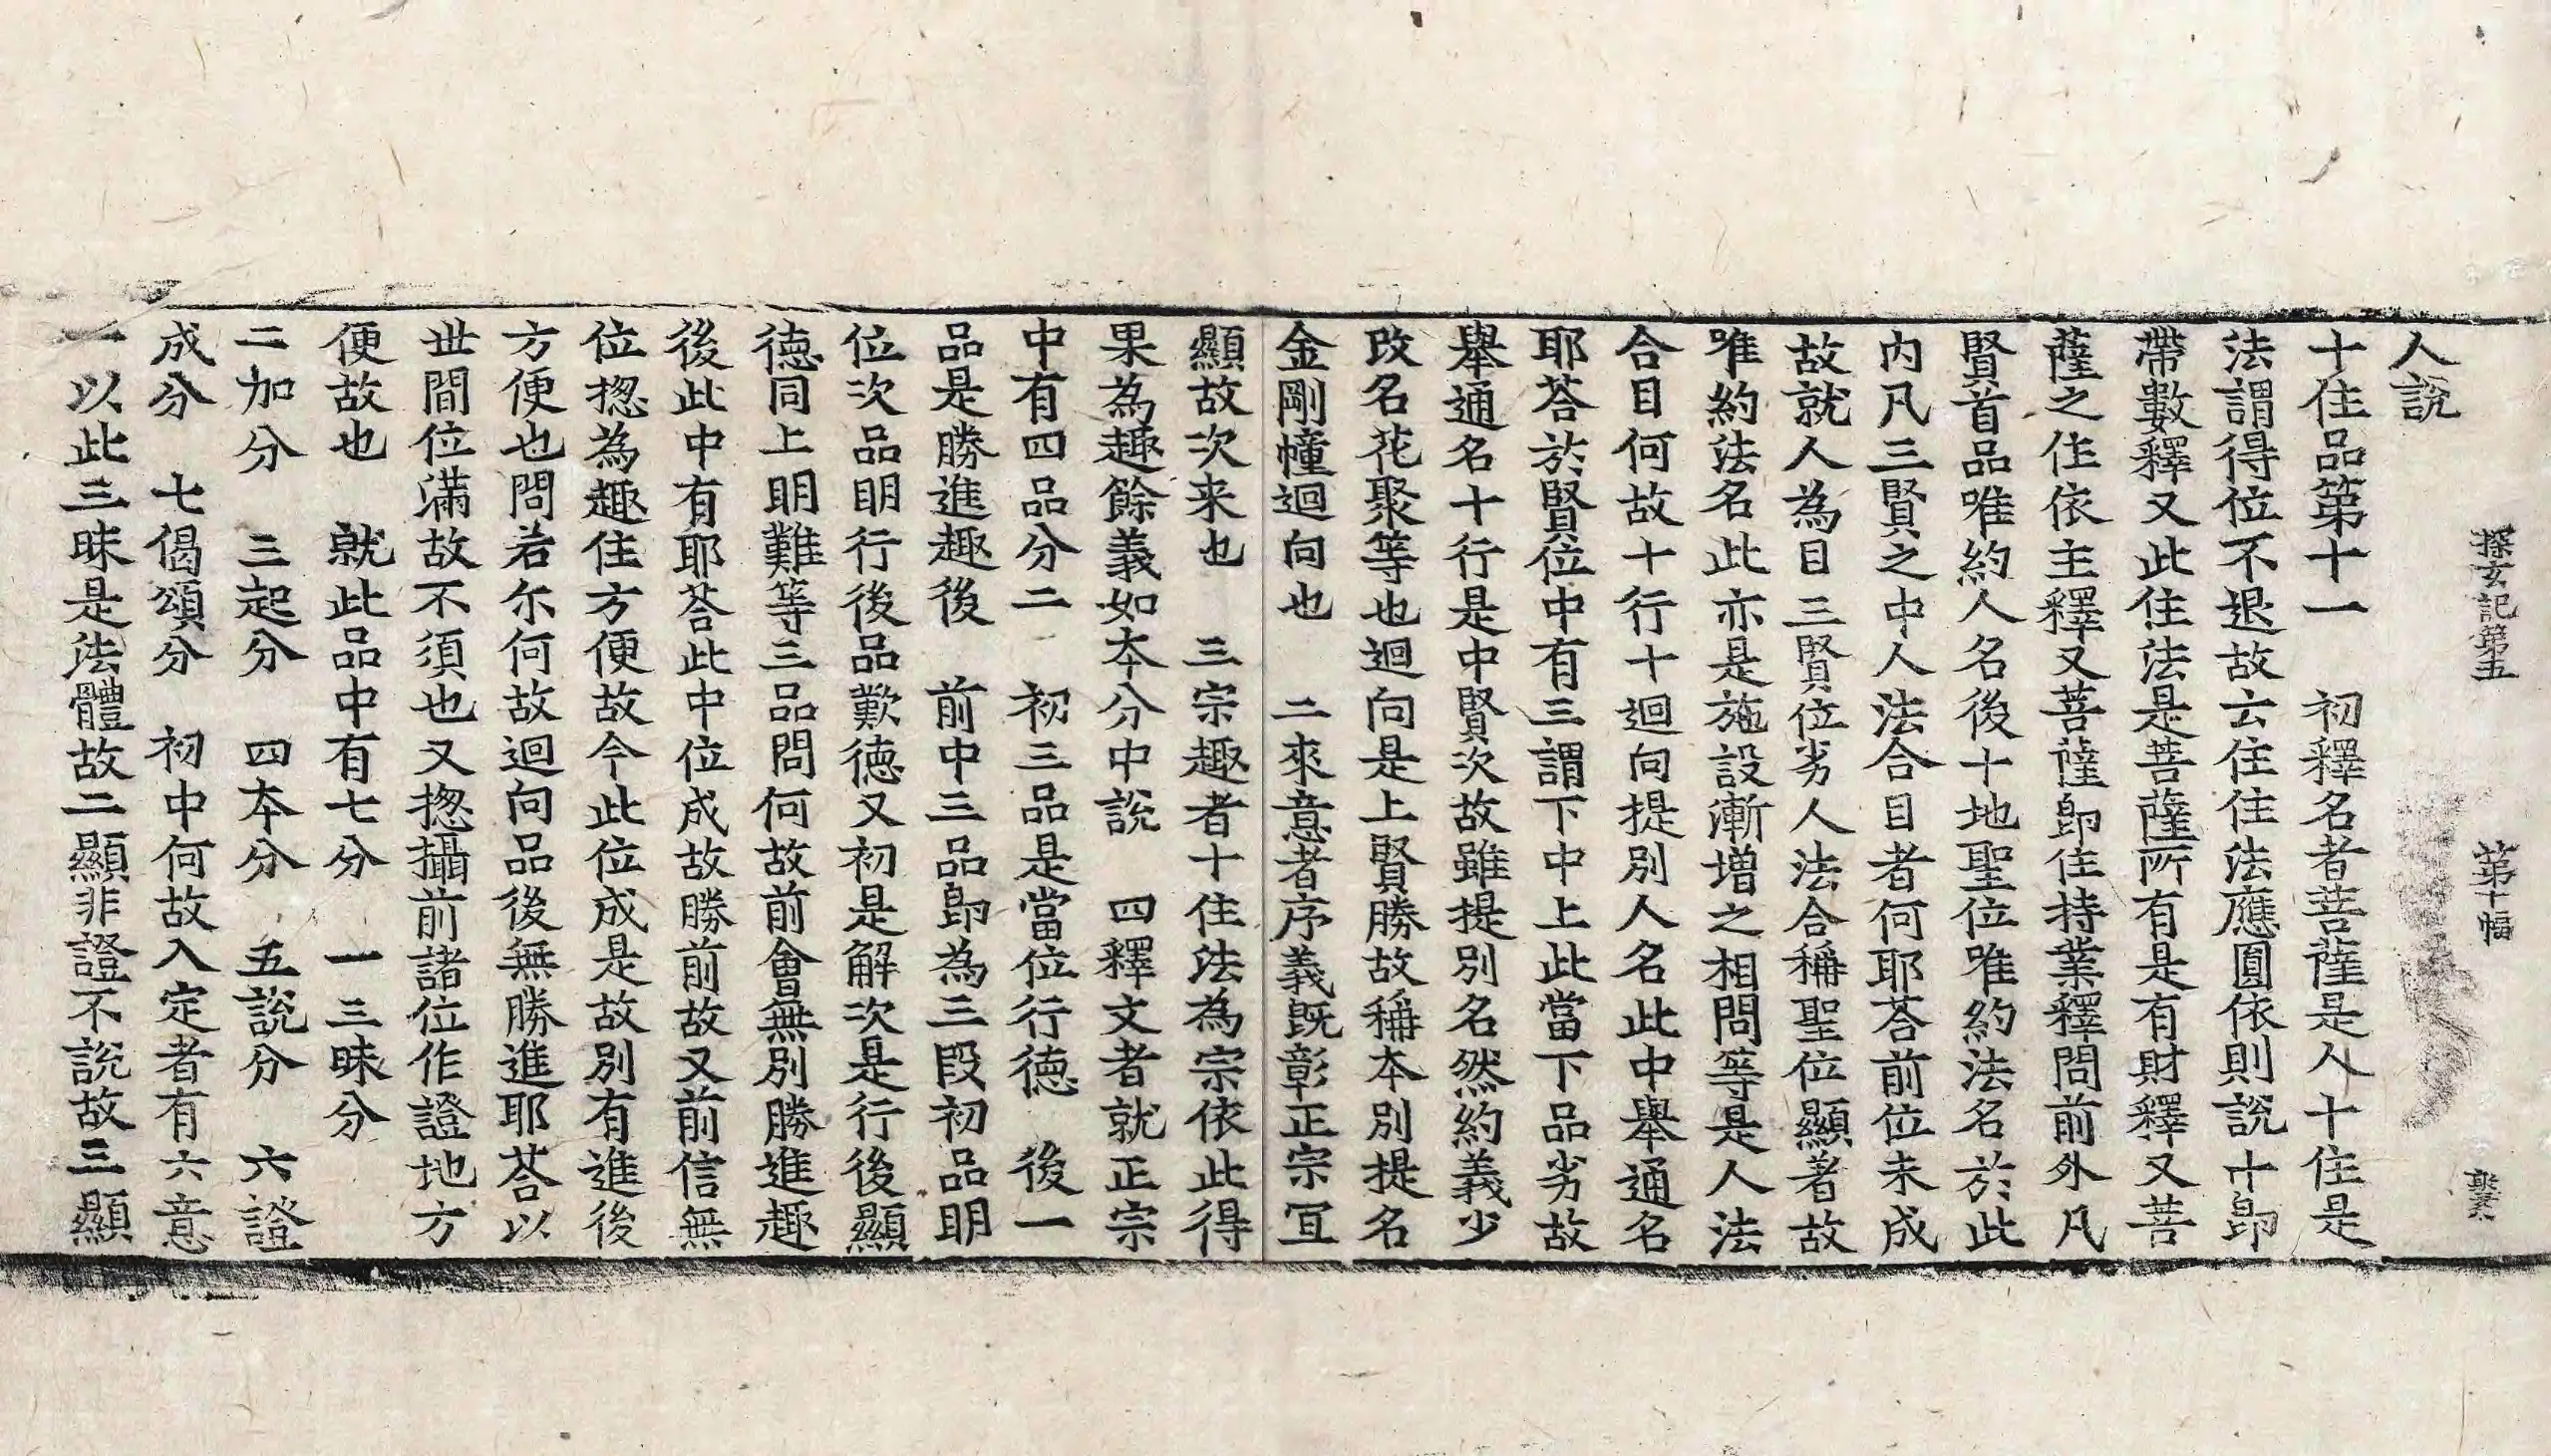 探玄記第五 第十幅
人說
十住品第十一 初釋名者菩薩是人十住是
法謂得位不退故云住住法應圓依則說十即
帶數釋又此住法是菩薩所有是有財釋又菩
薩之住依主釋又菩薩即住持業釋問前外凡
賢首品唯約人名後十地聖位唯約法名於此
內凡三賢之中人法合目者何耶荅前位未成
故就人為目三賢位劣人法合稱聖位顯著故
唯約法名此亦是施設漸增之相問等是人法
合目何故十行十迴向提別人名此中舉通名
耶荅於賢位中有三謂下中上此當下品劣故
舉通名十行是中賢次故雖提別名然約義少
改名花聚等也迴向是上賢勝故稱本別提名
金剛幢迴向也 二來意者序義既彰正宗冝
顯故次来也 三宗趣者十住法為宗依此得
果為趣餘義如本分中說 四釋文者就正宗
中有四品分二 初三品是當位行德 後一
品是勝進趣後 前中三品即為三段初品明
位次品明行後品歎德又初是解次是行後顯
德同上明難等三品問何故前會無別勝進趣
後此中有耶荅此中位成故勝前前故又前信無
位揔為趣住方便故今此位成是故別有進後
方便也問若尒何故迴向品後無勝進耶荅以
世間位滿故不須也又揔攝前諸位作證地方
便故也 就此品中有七分 一三昧分
二加分 三起分 四本分 五說分 六證
成分 七偈頌分 初中何故入定者有六意
一以此三昧是法體故二顯非證不說故三顯